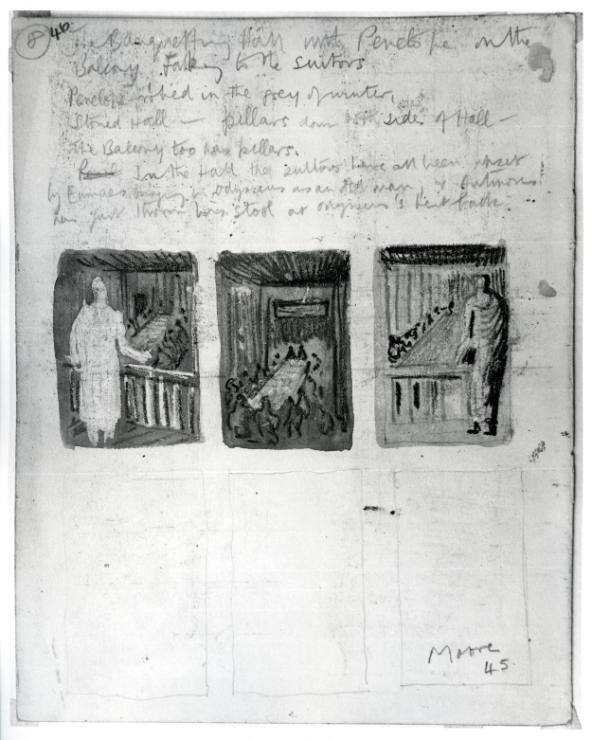 8 46
The Banqueting Hall with Penelope on the
Balcony talking to the suitors
Penelope robed in the grey of winter,
Stoned Hall — pillars down both sides of Hall —
The Balcony too has pillars.
In the Hall the suitors have all been upset
by Eumaeus bringing in Odysseus as an old man, & Antinous
has just thrown his stool at Odysseus's bent back.
Moore
45